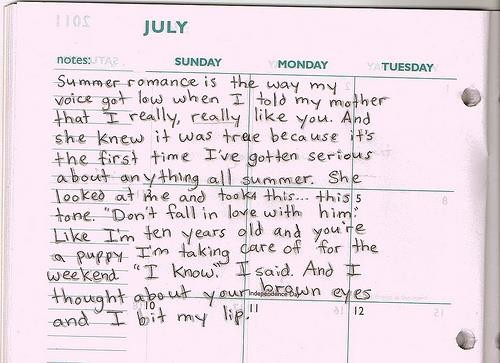 2011
JULY
notes: SUNDAY MONDAY TUESDAY
Summer romance is the way my
voice got low when I told my mother
that I really, really like you. And
she knew it was true because it's
the first time I've gotten serious
about anything all summer. She
looked at me and took this... this 5
tone. "Don't fall in love with him."
Like I'm ten years old and you're
a puppy I'm taking care of for the
weekend "I know." I said. And I
thought about your brown eyes
Independence Day
and I bit my lip.
10 11 12